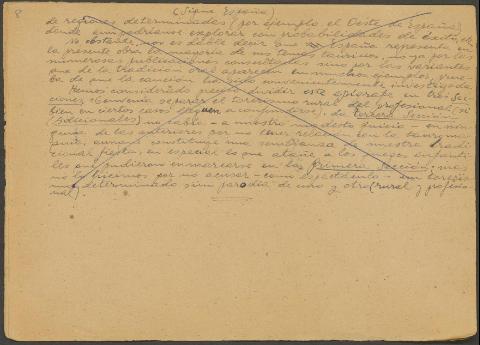 8
(Sigue España)
de regiones determinadas (por ejemplo, el Oeste de España)
donde aún podríamos explorar con probabilidades de éxito, etc.
No obstante, nos es dable decir que España representa en
la presente obra la mayoría de sus temas taurinos, no ya por las
numerosas publicaciones consultadas sino por las variantes
que de la tradición oral aparecen en muchos ejemplos, prue-
ba de que la canción ha sido investigada.
Hemos considerado dividir este en tres Sec-
ciones. Convenía separar el toreo rural del profesional (si
bien en ciertos casos lleguen a confundirse). La tercera Sección
(Adicionales) no cabía - a nuestro modesto juicio - en nin-
guna de las anteriores por no tener relación con la tauroma-
quia, aunque constituye una semblanza la nuestra tradi-
cional fiesta, en especial lo que atañe a los juegos infanti-
les que pudieron enmarcarse en la Primera Sección, mas
no lo hicimos por no acusar - como espectáculo - un toreo
determinado sino parodia de uno y otro (rural y profesio-
nal).